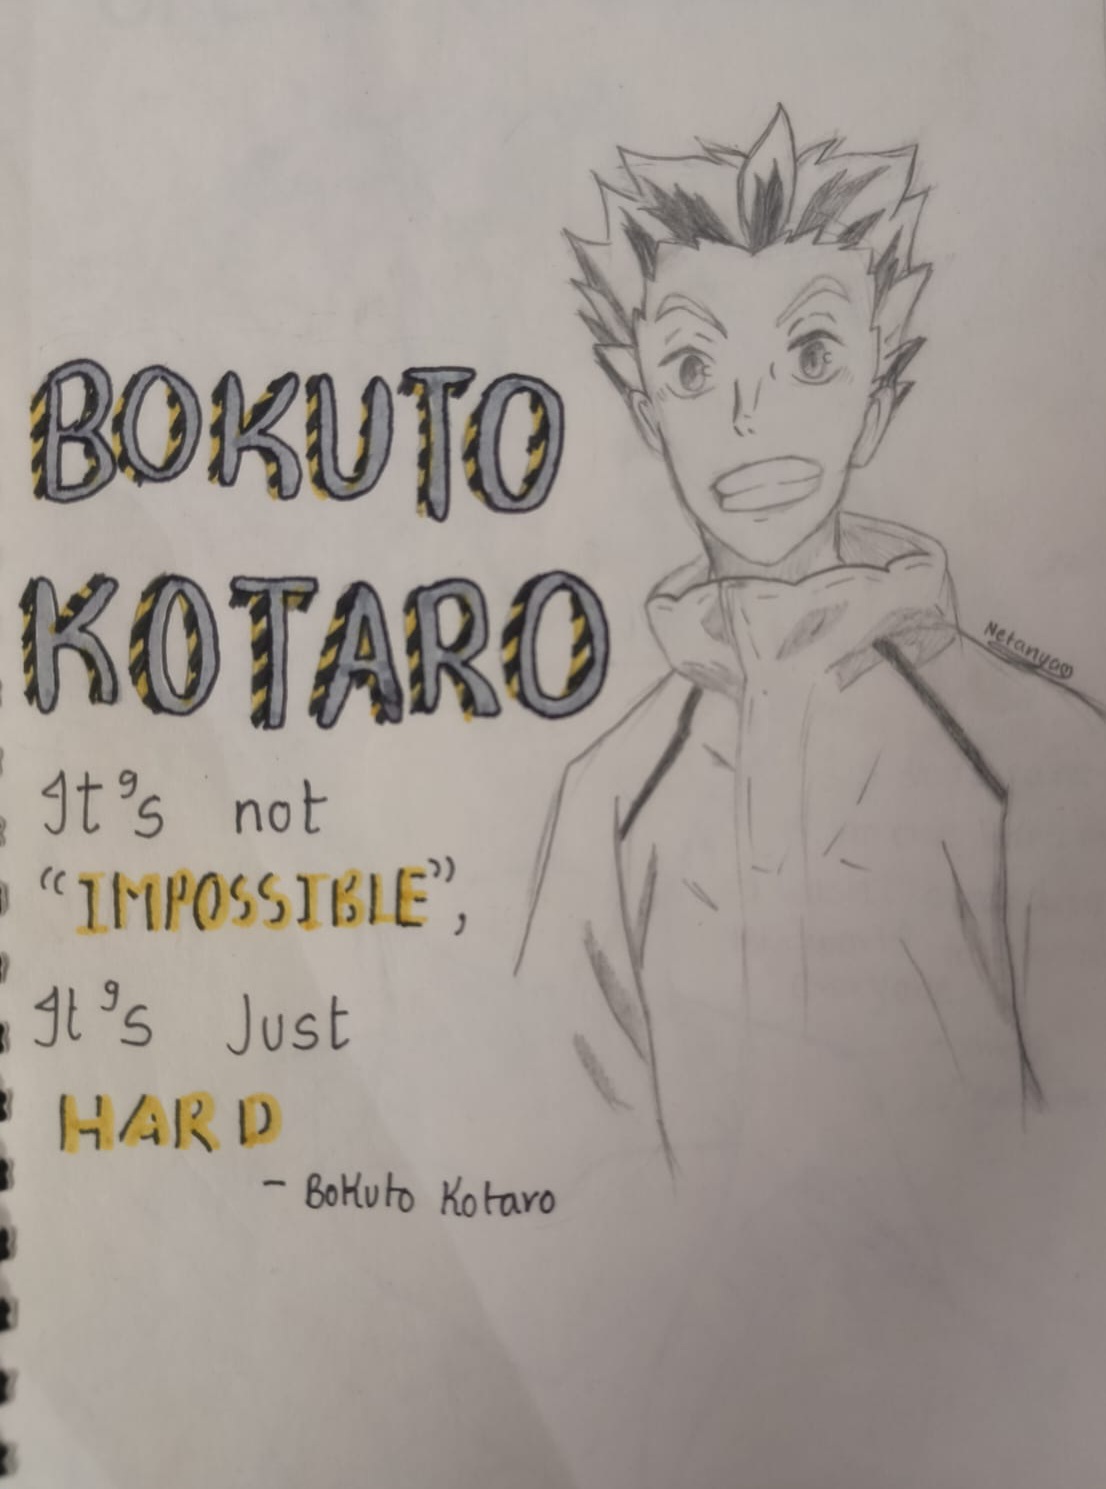 BOKUTO
KOTARO
It's not
"IMPOSSIBLE",
It's Just
HARD
- Bokuto Kotaro
Netanya